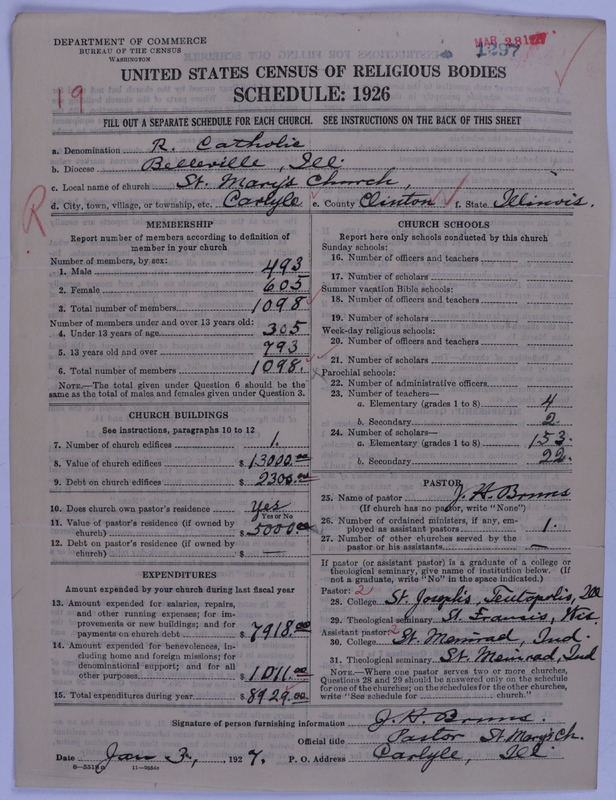 DEPARTMENT OF COMMERCE
BUREAU OF THE CENSUS
WASHINGTON
MAR 28 1927
1297
19
UNITED STATES CENSUS OF RELIGIOUS BODIES
SCHEDULE: 1926
FILL OUT A SEPARATE SCHEDULE FOR EACH CHURCH. SEE INSTRUCTIONS ON THE BACK OF THIS SHEET
a. Denomination R. Catholic
b. Diocese Belleville, Ill.
c. Local name of church St. Mary's Church,
d. City, town, village, or township, etc. Carlyle e. County Clinton f. State Illinois.
R
MEMBERSHIP
Report number of members according to definition of member in your church
Number of members, by sex:
1. Male 493
2. Female 605
3. Total number of members 1098
Number of members under and over 13 years old:
4. Under 13 years of age 305
5. 13 years old and over 793
6. Total number of members 1098.
NOTE.—The total given under Question 6 should be the same as the total of males and females given under Question 3.
CHURCH BUILDINGS
See instructions, paragraphs 10 to 12
7. Number of church edifices 1.
8. Value of church edifices $ 13000.00
9. Debt on church edifices $ 2300.00
10. Does church own pastor's residence yes
Yes or No
11. Value of pastor's residence (if owned by church) $ 5000.00
12. Debt on pastor's residence (if owned by church) $ —
EXPENDITURES
Amount expended by your church during last fiscal year
13. Amount expended for salaries, repairs, and other running expenses; for improvements or new buildings; and for payments on church debt $ 7918.00
14. Amount expended for benevolences, including home and foreign missions; for denominational support; and for all other purposes $ 1011.00
15. Total expenditures during year $ 8929.00
CHURCH SCHOOLS
Report here only schools conducted by this church
Sunday schools:
16. Number of officers and teachers
17. Number of scholars
Summer vacation Bible schools:
18. Number of officers and teachers
19. Number of scholars
Week-day religious schools:
20. Number of officers and teachers
21. Number of scholars
Parochial schools:
22. Number of administrative officers
23. Number of teachers—
a. Elementary (grades 1 to 8) 4
b. Secondary 2
24. Number of scholars—
a. Elementary (grades 1 to 8) 153
b. Secondary 22
PASTOR
25. Name of pastor J. H. Bruns
(If church has no pastor, write "None")
26. Number of ordained ministers, if any, employed as assistant pastors 1.
27. Number of other churches served by the pastor or his assistants —
If pastor (or assistant pastor) is a graduate of a college or theological seminary, give name of institution below. (If not a graduate, write "No" in the space indicated.)
Pastor: 2
28. College St. Josephs, Teutopolis, Ill
29. Theological seminary St. Francis, Wis.
Assistant pastor: 2
30. College St. Meinrad, Ind.
31. Theological seminary St. Meinrad, Ind
NOTE.—Where one pastor serves two or more churches, Questions 28 and 29 should be answered only on the schedule for one of the churches; on the schedules for the other churches, write "See schedule for church."
Signature of person furnishing information J. H. Bruns.
Official title Pastor St. Mary's Ch.
Date Jan 3, 1927. P. O. Address Carlyle, Ill